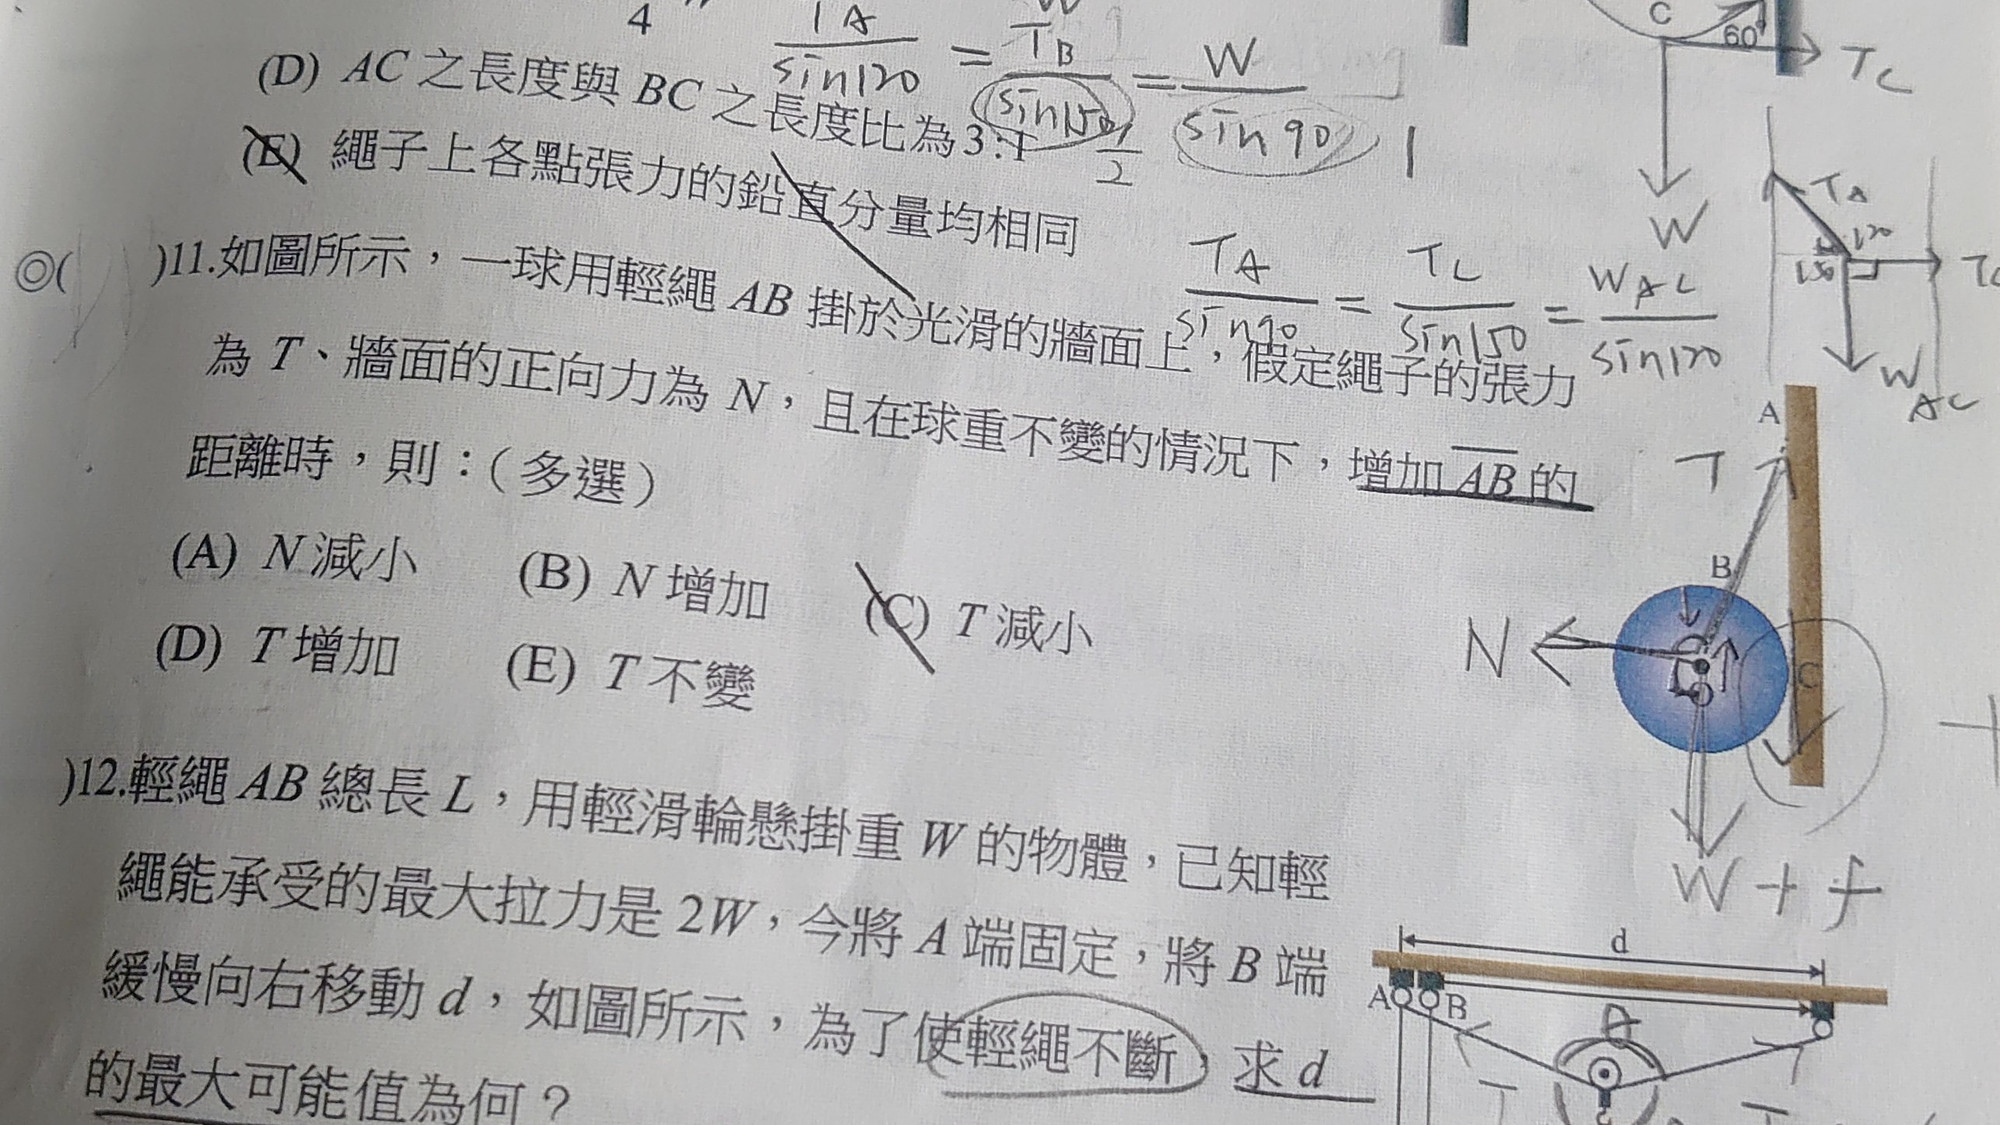 4
T A
sin120
=
T B
sin150
=
W
sin 90
1/2
1
(D) AC 之長度與 BC 之長度比為 3:1
(E) 繩子上各點張力的鉛直分量均相同
C
60°
T C
W
TA
120
150
W AC
◎( )11.如圖所示，一球用輕繩 AB 掛於光滑的牆面上，假定繩子的張力
為 T、牆面的正向力為 N，且在球重不變的情況下，增加 AB 的
距離時，則：(多選)
T A
sin90
=
T C
sin150
=
W AC
sin120
(A) N 減小 (B) N 增加 (C) T 減小
(D) T 增加 (E) T 不變
A
T
B
N
C
W + f
)12.輕繩 AB 總長 L，用輕滑輪懸掛重 W 的物體，已知輕
繩能承受的最大拉力是 2W，今將 A 端固定，將 B 端
緩慢向右移動 d，如圖所示，為了使輕繩不斷，求 d
的最大可能值為何？
d
A B
T
T